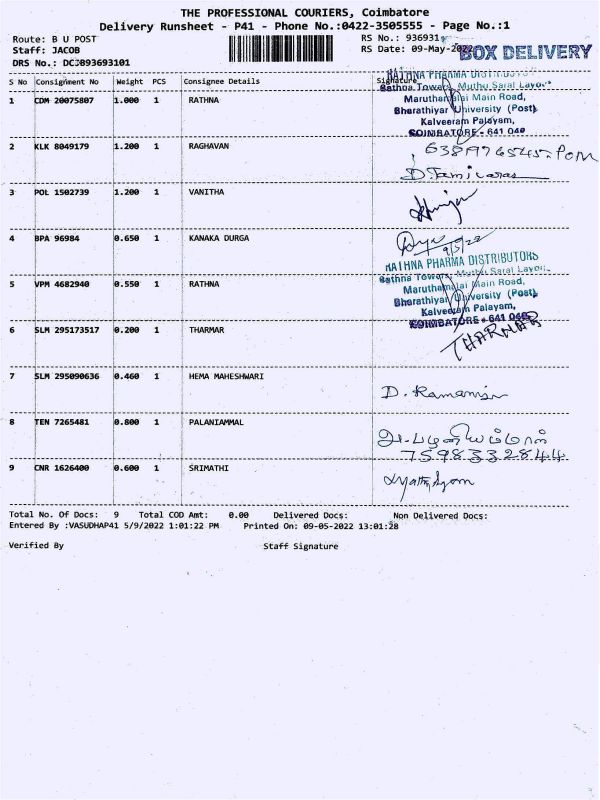 THE PROFESSIONAL COURIERS, Coimbatore
Delivery Runsheet - P41 - Phone No.:0422-3505555 - Page No.:1
Route: B U POST
RS No.: 936931
Staff: JACOB
RS Date: 09-May-2022
BOX DELIVERY
DRS No.: DCJ093693101
S No Consignment No Weight PCS Consignee Details Signature
RATHNA PHARMA DISTRIBUTORS
Rathna Towers, Muthu Saral Layout
1 CDM 20075807 1.000 1 RATHNA
Maruthamalai Main Road,
Bharathiyar University (Post)
Kalveeram Palayam,
COIMBATORE - 641 046
2 KLK 8049179 1.200 1 RAGHAVAN
3 POL 1502739 1.200 1 VANITHA
4 BPA 96984 0.650 1 KANAKA DURGA
9/5/22
RATHNA PHARMA DISTRIBUTORS
Rathna Towers, Muthu Saral Layout
5 VPM 4682940 0.550 1 RATHNA
Maruthamalai Main Road,
Bharathiyar University (Post)
Kalveeram Palayam,
COIMBATORE - 641 046
6 SLM 295173517 0.200 1 THARMAR
THARMAR
7 SLM 295090636 0.460 1 HEMA MAHESHWARI
8 TEN 7265481 0.800 1 PALANIAMMAL
அ.பழனியம்மாள்
7598332844
9 CNR 1626400 0.600 1 SRIMATHI
Total No. Of Docs: 9 Total COD Amt: 0.00 Delivered Docs: Non Delivered Docs:
Entered By :VASUDHAP41 5/9/2022 1:01:22 PM Printed On: 09-05-2022 13:01:28
Verified By Staff Signature